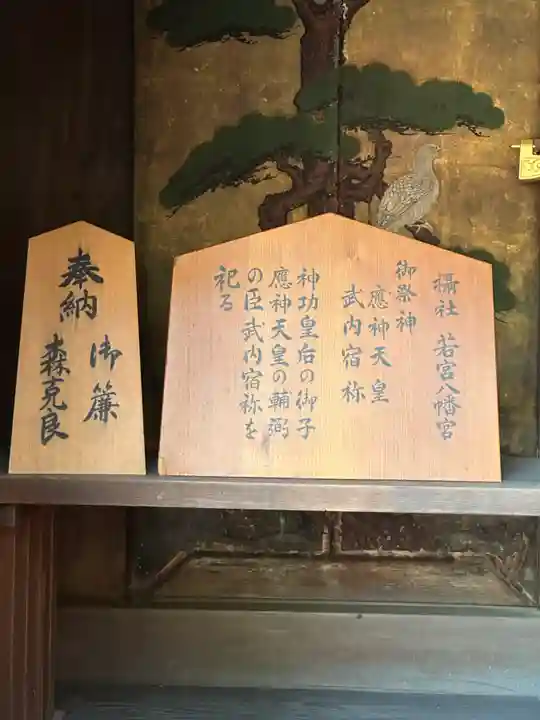 攝社 若宮八幡宮
御祭神
應神天皇
武内宿祢
神功皇后の御子
應神天皇の輔弼
の臣武内宿祢を
祀る
奉納
御簾
森克良